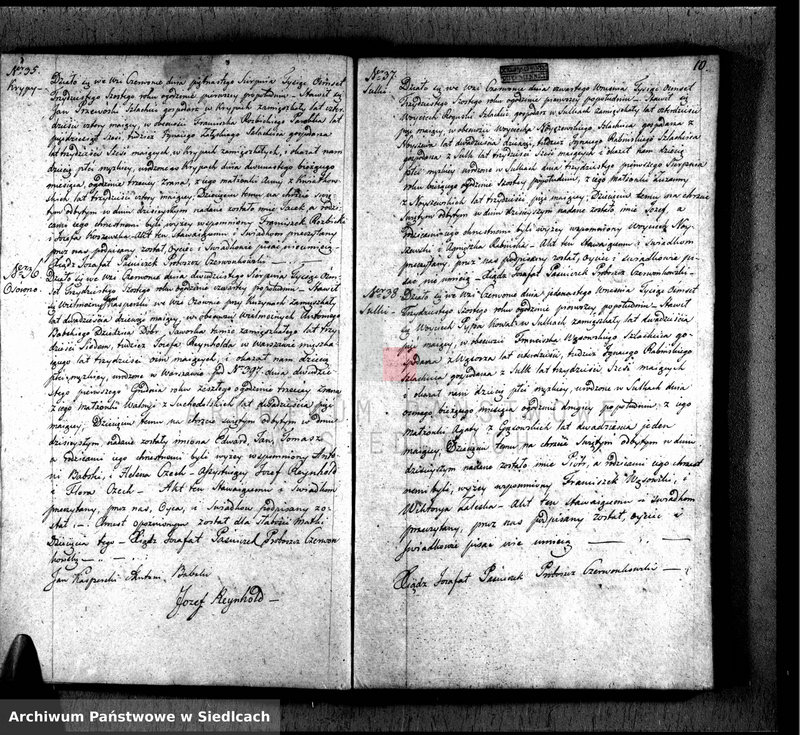 Nro 35.
Krypy
Działo się we wsi Czerwonce dnia piętnastego Sierpnia Tysiąc Ośmset
Trzydziestego Szóstego roku o godzinie pierwszej popołudniu. Stawił się
Jan Szlachcic gospodarz w Krypach zamieszkały lat czter
dzieści cztery mający, w obecności Franciszka Rozbickiego lat
pięćdziesiąt tudzież Ignacego Szlachcica gospodarza
lat trzydzieści sześć mających, w Krypach zamieszkałych, i okazał nam
dziecię płci męzkiej, urodzone w Krypach dnia dwunastego bieżącego
miesiąca, o godzinie trzeciej zrana, z jego małżonki Anny z
lat trzydzieści cztery mającej. Dziecięciu temu na chrzcie świę
tym odbytym w dniu dzisiejszym nadane zostało imie Jacek a rodzi
cami jego chrzestnemi byli wyżej wspomniony Franciszek Rozbicki
i Józefa Akt ten Stawaiącemu i Świadkom przeczytany
przez nas podpisany został, Oyciec i Świadkowie pisać nieumieią
Xiądz Jozafat Pasiuzek Proboszcz Czerwonkowski
Nro 36.
Osowno.
Działo się we wsi Czerwonce dnia dwudziestego Sierpnia Tysiąc Ośm
set Trzydziestego Szóstego roku o godzinie czwartej popołudniu. Stawił
się Wielmożny Kasperski we wsi Osownie przy zamieszkały
lat dwadzieścia dziewięć mający, w obecności Wielmożnych Antoniego
Babskiego Dziedzica Dóbr Jaworka tamże zamieszkałego lat trzy
dzieści siedem, tudzież Józefa Reynholda w Warszawie mięszka
jącego lat trzydzieści ośm mających, i okazał nam dziecię
płci męzkiej, urodzone w Warszawie pod No 397 dnia dwudzie
stego pierwszego Grudnia roku zeszłego o godzinie trzeciej zrana
z jego małżonki Walerji z Suchodolskich lat dwadzieścia pięć
mającej. Dziecięciu temu na chrzcie świętym odbytym w dniu
dzisiejszym nadane zostały imiona Edward, Jan, Tomasz
a rodzicami jego chrzestnemi byli wyżej wspomniony Anto
ni Babski, i Helena Czech Assystujący Jozef Reynhold
i Flora Czech Akt ten Stawaiącemu i świadkom
przeczytany, przez nas, Oyca, i Świadków podpisany zo
stał Chrzest opóźnionym został dla słabości Matki
Dziecięcia tego Xiądz Jozafat Pasiuzek Proboszcz Czerwon
kowski
Jan Kasperski Anton. Babski
Jozef Reynhold
10.
Nro 37.
Sulki.
Działo się we wsi Czerwonce dnia czwartego Września Tysiąc Ośmset
Trzydziestego Szóstego roku o godzinie pierwszej popołudniu. Stawił się
Woyciech Roguski Szlachcic gospodarz w Sulkach zamieszkały lat czterdzieści
pięć mający, w obecności Woyciecha Szlachcica gospodarza z
lat dwadzieścia dziewięć, tudzież Ignacego Rabińskiego Szlachcica
gospodarza z Sulk lat trzydzieści sześć mających, i okazał nam dziecię
płci męzkiej urodzone w Sulkach dnia trzydziestego pierwszego Sierpnia
roku bieżącego o godzinie szóstej popołudniu, z jego małżonki Zuzanny
z lat trzydzieści pięć mającej. Dziecięciu temu na chrzcie
Świętym odbytym w dniu dzisiejszym nadane zostało imie Józef, a
Rodzicami jego chrzestnemi byli wyżej wspomniony Woyciech
i Rabińska. Akt ten Stawaiącemu i świadkom
przeczytany, przez nas podpisany został, Oyciec i świadkowie pi
sać nie umieią Xiądz Jozafat Pasiuzek Proboszcz Czerwonkowski
Nro 38.
Sulki
Działo się we wsi Czerwonce dnia jedenastego Września Tysiąc Ośmset
Trzydziestego Szóstego roku o godzinie pierwszej, popołudniu. Stawił
się Woyciech Kowal w Sulkach zamieszkały, lat trzydzieści
pięć mający, w obecności Franciszka Wąsowskiego Szlachcica go
spodarza z lat czterdzieści, tudzież Ignacego Rabińskiego
Szlachcica gospodarza z Sulk lat trzydzieści sześć mających
i okazał nam dziecię płci męzkiej, urodzone w Sulkach dnia
osmego, bieżącego miesiąca o godzinie drugiej popołudniu, z jego
małżonki Agaty z lat dwadzieścia jeden
mającej. Dziecięciu temu na chrzcie Świętym odbytym w dniu
dzisiejszym nadane zostało imie Piotr, a rodzicami jego chrzest
nemi byli, wyżej wspomniony Franciszek Wąsowski, i
Wiktorya Zaleska. Akt ten Stawaiącemu i świadkom
przeczytany, przez nas podpisany został, Oyciec i
świadkowie pisać nie umieią
Xiądz Jozafat Pasiuzek Proboszcz Czerwonkowski
ARCHIWUM PAŃSTWOWE
W SIEDLCACH
Archiwum Państwowe w Siedlcach